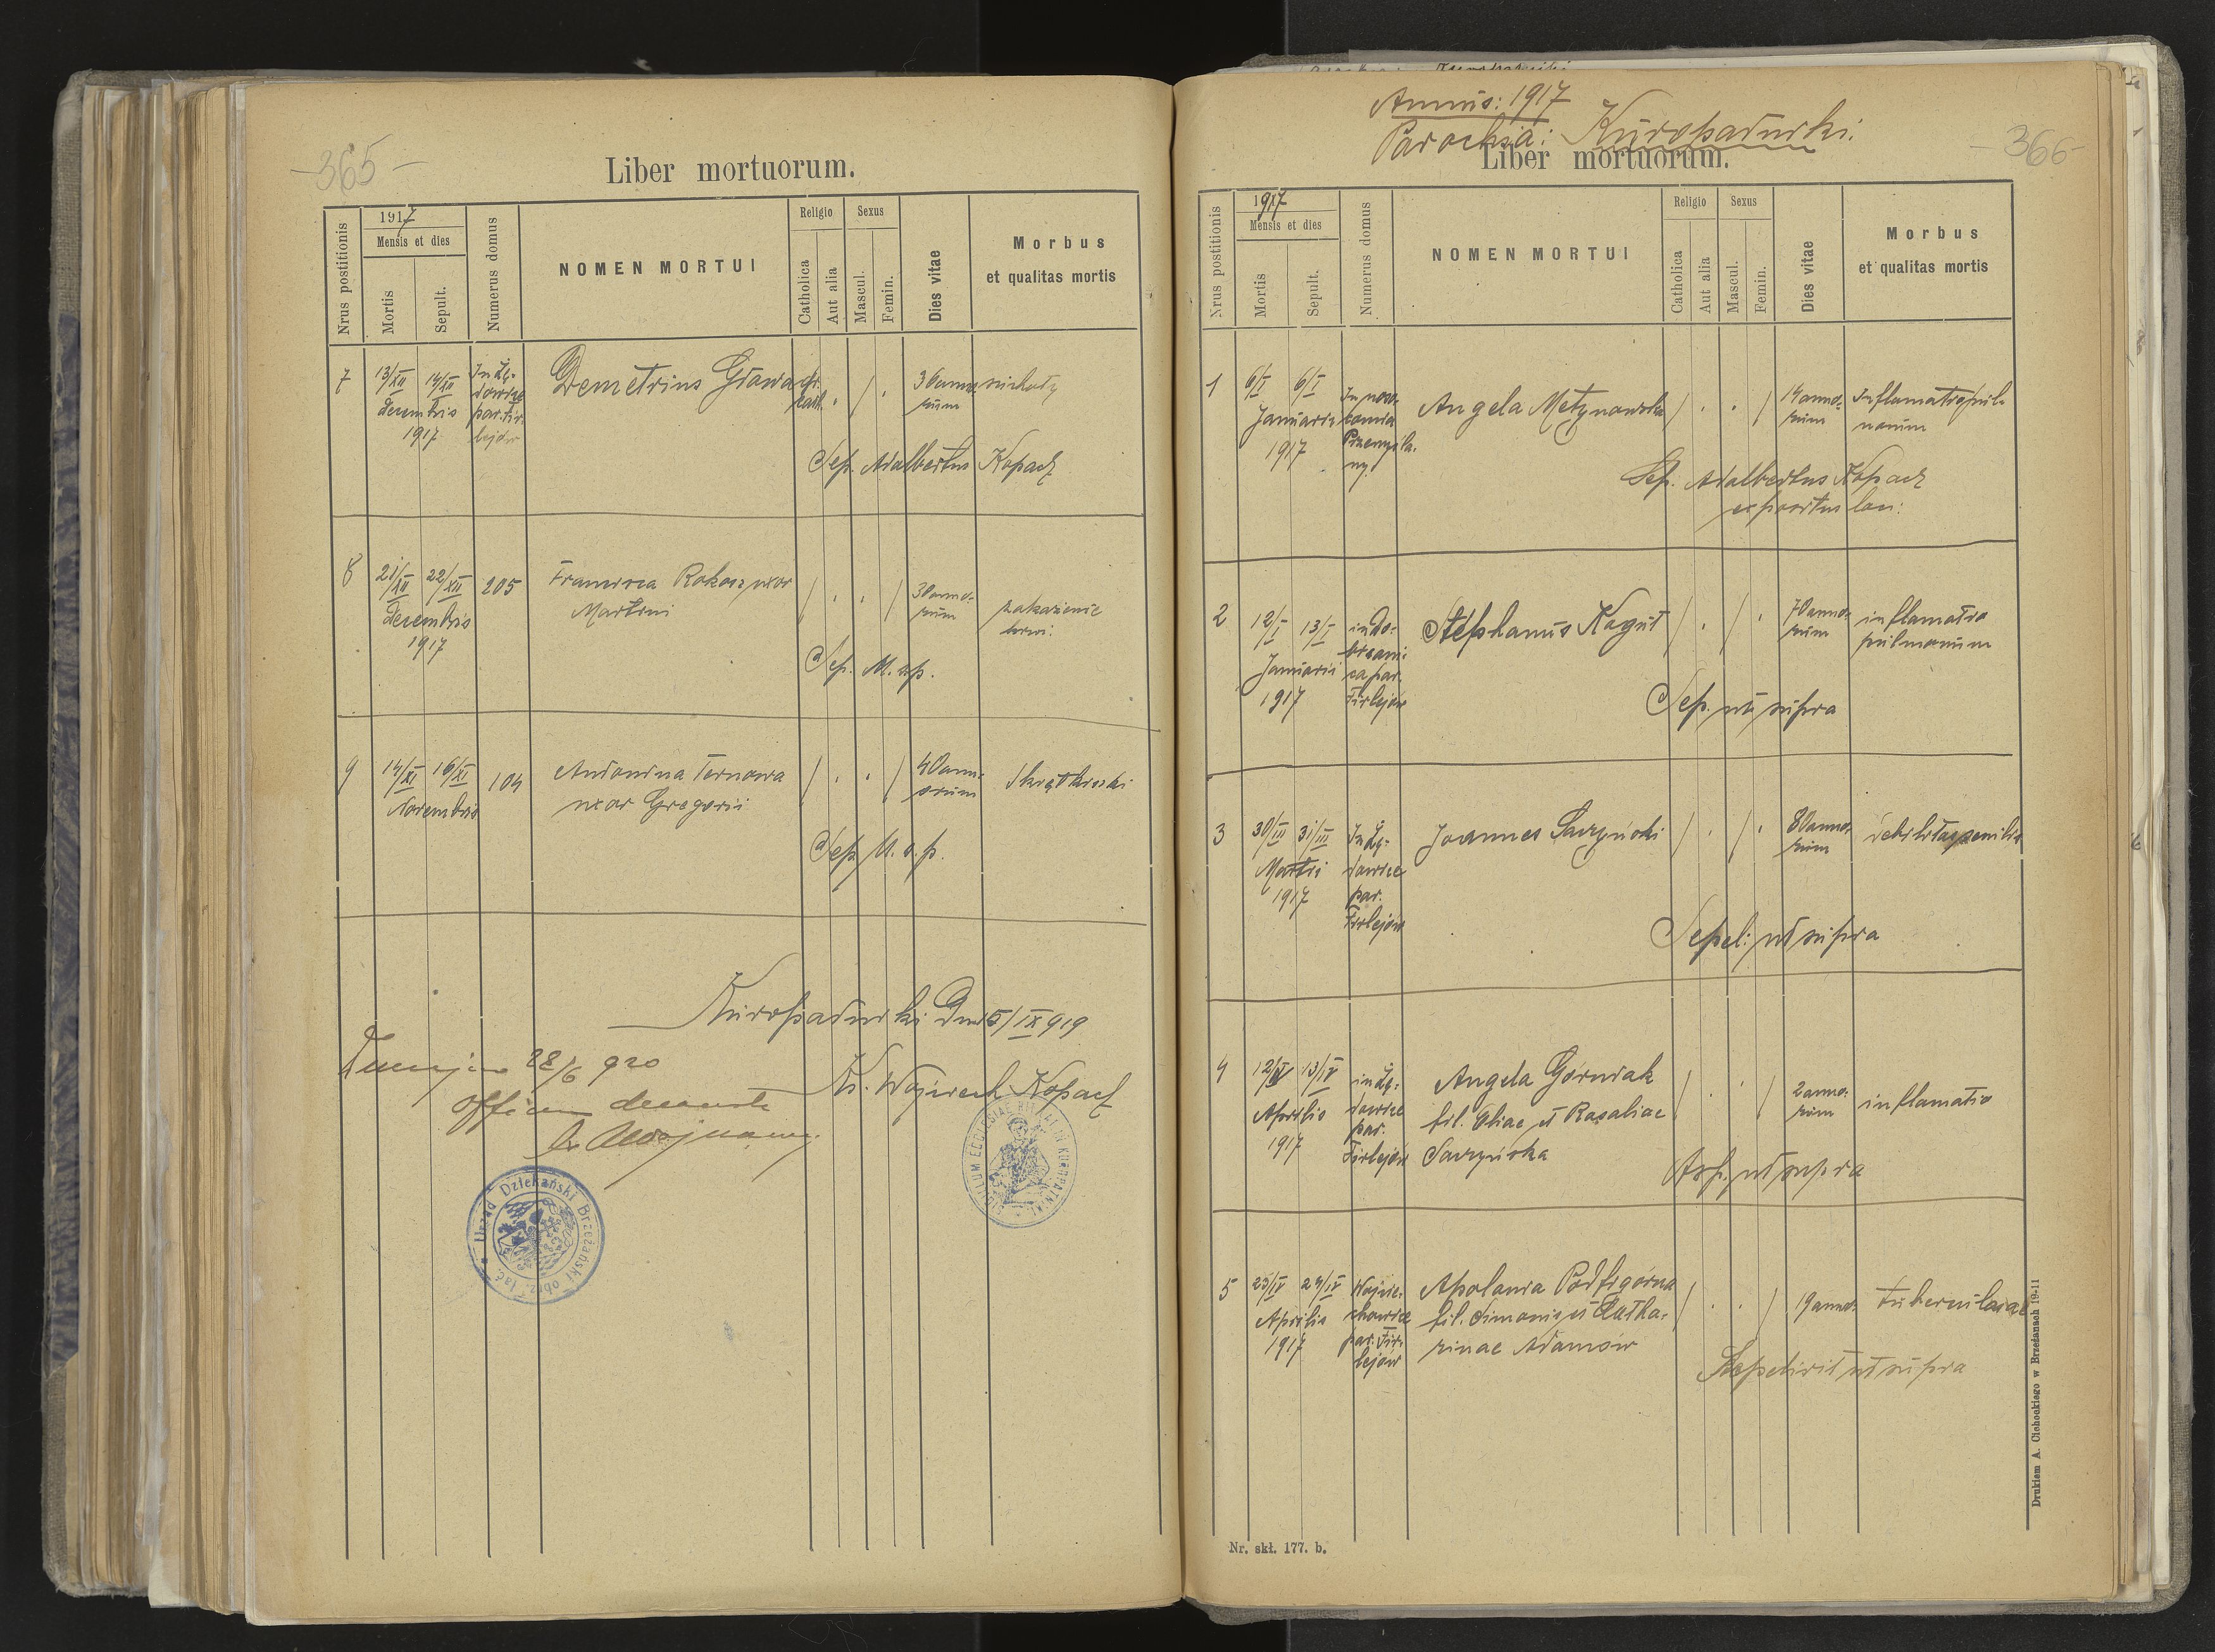 365
Liber mortuorum.
Nrus postitionis
1917
Mensis et dies
Mortis
Sepult.
Numerus domus
NOMEN MORTUI
Religio
Catholica
Aut alia
Sexus
Mascul.
Femin.
Dies vitae
Morbus
et qualitas mortis
7
13/XII 14/XII
decembris
1917
In Żę-
dowice
par. Fir-
lejów
Demetrius
gr.
cath.
36 anno-
rum
suchoty
Sep. Adalbertus Kopacz
8
21/XII 22/XII
decembris
1917
205
Francisca Rokosz uxor
Martini
30 anno-
rum
zakażenie
krwi.
Sep. M. s. p.
9
14/XI 16/XI
Novembris
104
Antonina Ternowa
uxor Gregorii
40 ann-
orum
Skręt kiszki
Sep. U. s. p.
Kuropatniki Dnia 5/IX 919
Ks. Wojciech Kopacz
28/6 920
Urząd Dziekański Brzeżański obrz. łać.
Annus: 1917
Parochia: Kuropatniki.
366
Liber mortuorum.
Nrus postitionis
1917
Mensis et dies
Mortis
Sepult.
Numerus domus
NOMEN MORTUI
Religio
Catholica
Aut alia
Sexus
Mascul.
Femin.
Dies vitae
Morbus
et qualitas mortis
1
6/I 6/I
Januarii
1917
Przemyśla-
ny
Angela Metynowska
14 anno-
rum
Inflamatio pul-
monum
Sep. Adalbertus Kopacz
expositus loci:
2
12/I 13/I
Januarii
1917
in Do-
brzani-
ca par.
Firlejów
Stephanus Kogut
70 anno-
rum
inflamatio
pulmonum
Sep. ut supra
3
30/III 31/III
Martii
1917
In Żę-
dowice
par.
Firlejów
Joannes Sarzyński
80 anno-
rum
debilitas senilis
Sepel: ut supra
4
12/IV 13/IV
Aprilis
1917
in Żę-
dowice
par.
Firlejów
Angela Górniak
fil. Eliae et Rosaliae
Sarzyńska
2 anno-
rum
inflamatio
ut supra
5
23/IV 24/IV
Aprilis
1917
Wojcie-
chowice
par. Fir-
lejów
Apolonia Podfigórna
fil. Simonis et Catha-
rinae Adamów
19 anno-
tuberculosae
Sepelivit ut supra
Nr. skł. 177. b.
Drukiem A. Ciehockiego w Brzeżanach 19-11